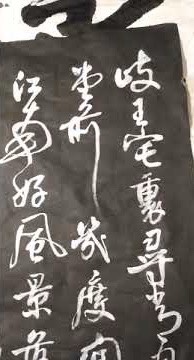 岐王宅裏尋常
堂前幾度聞
江南好風景落